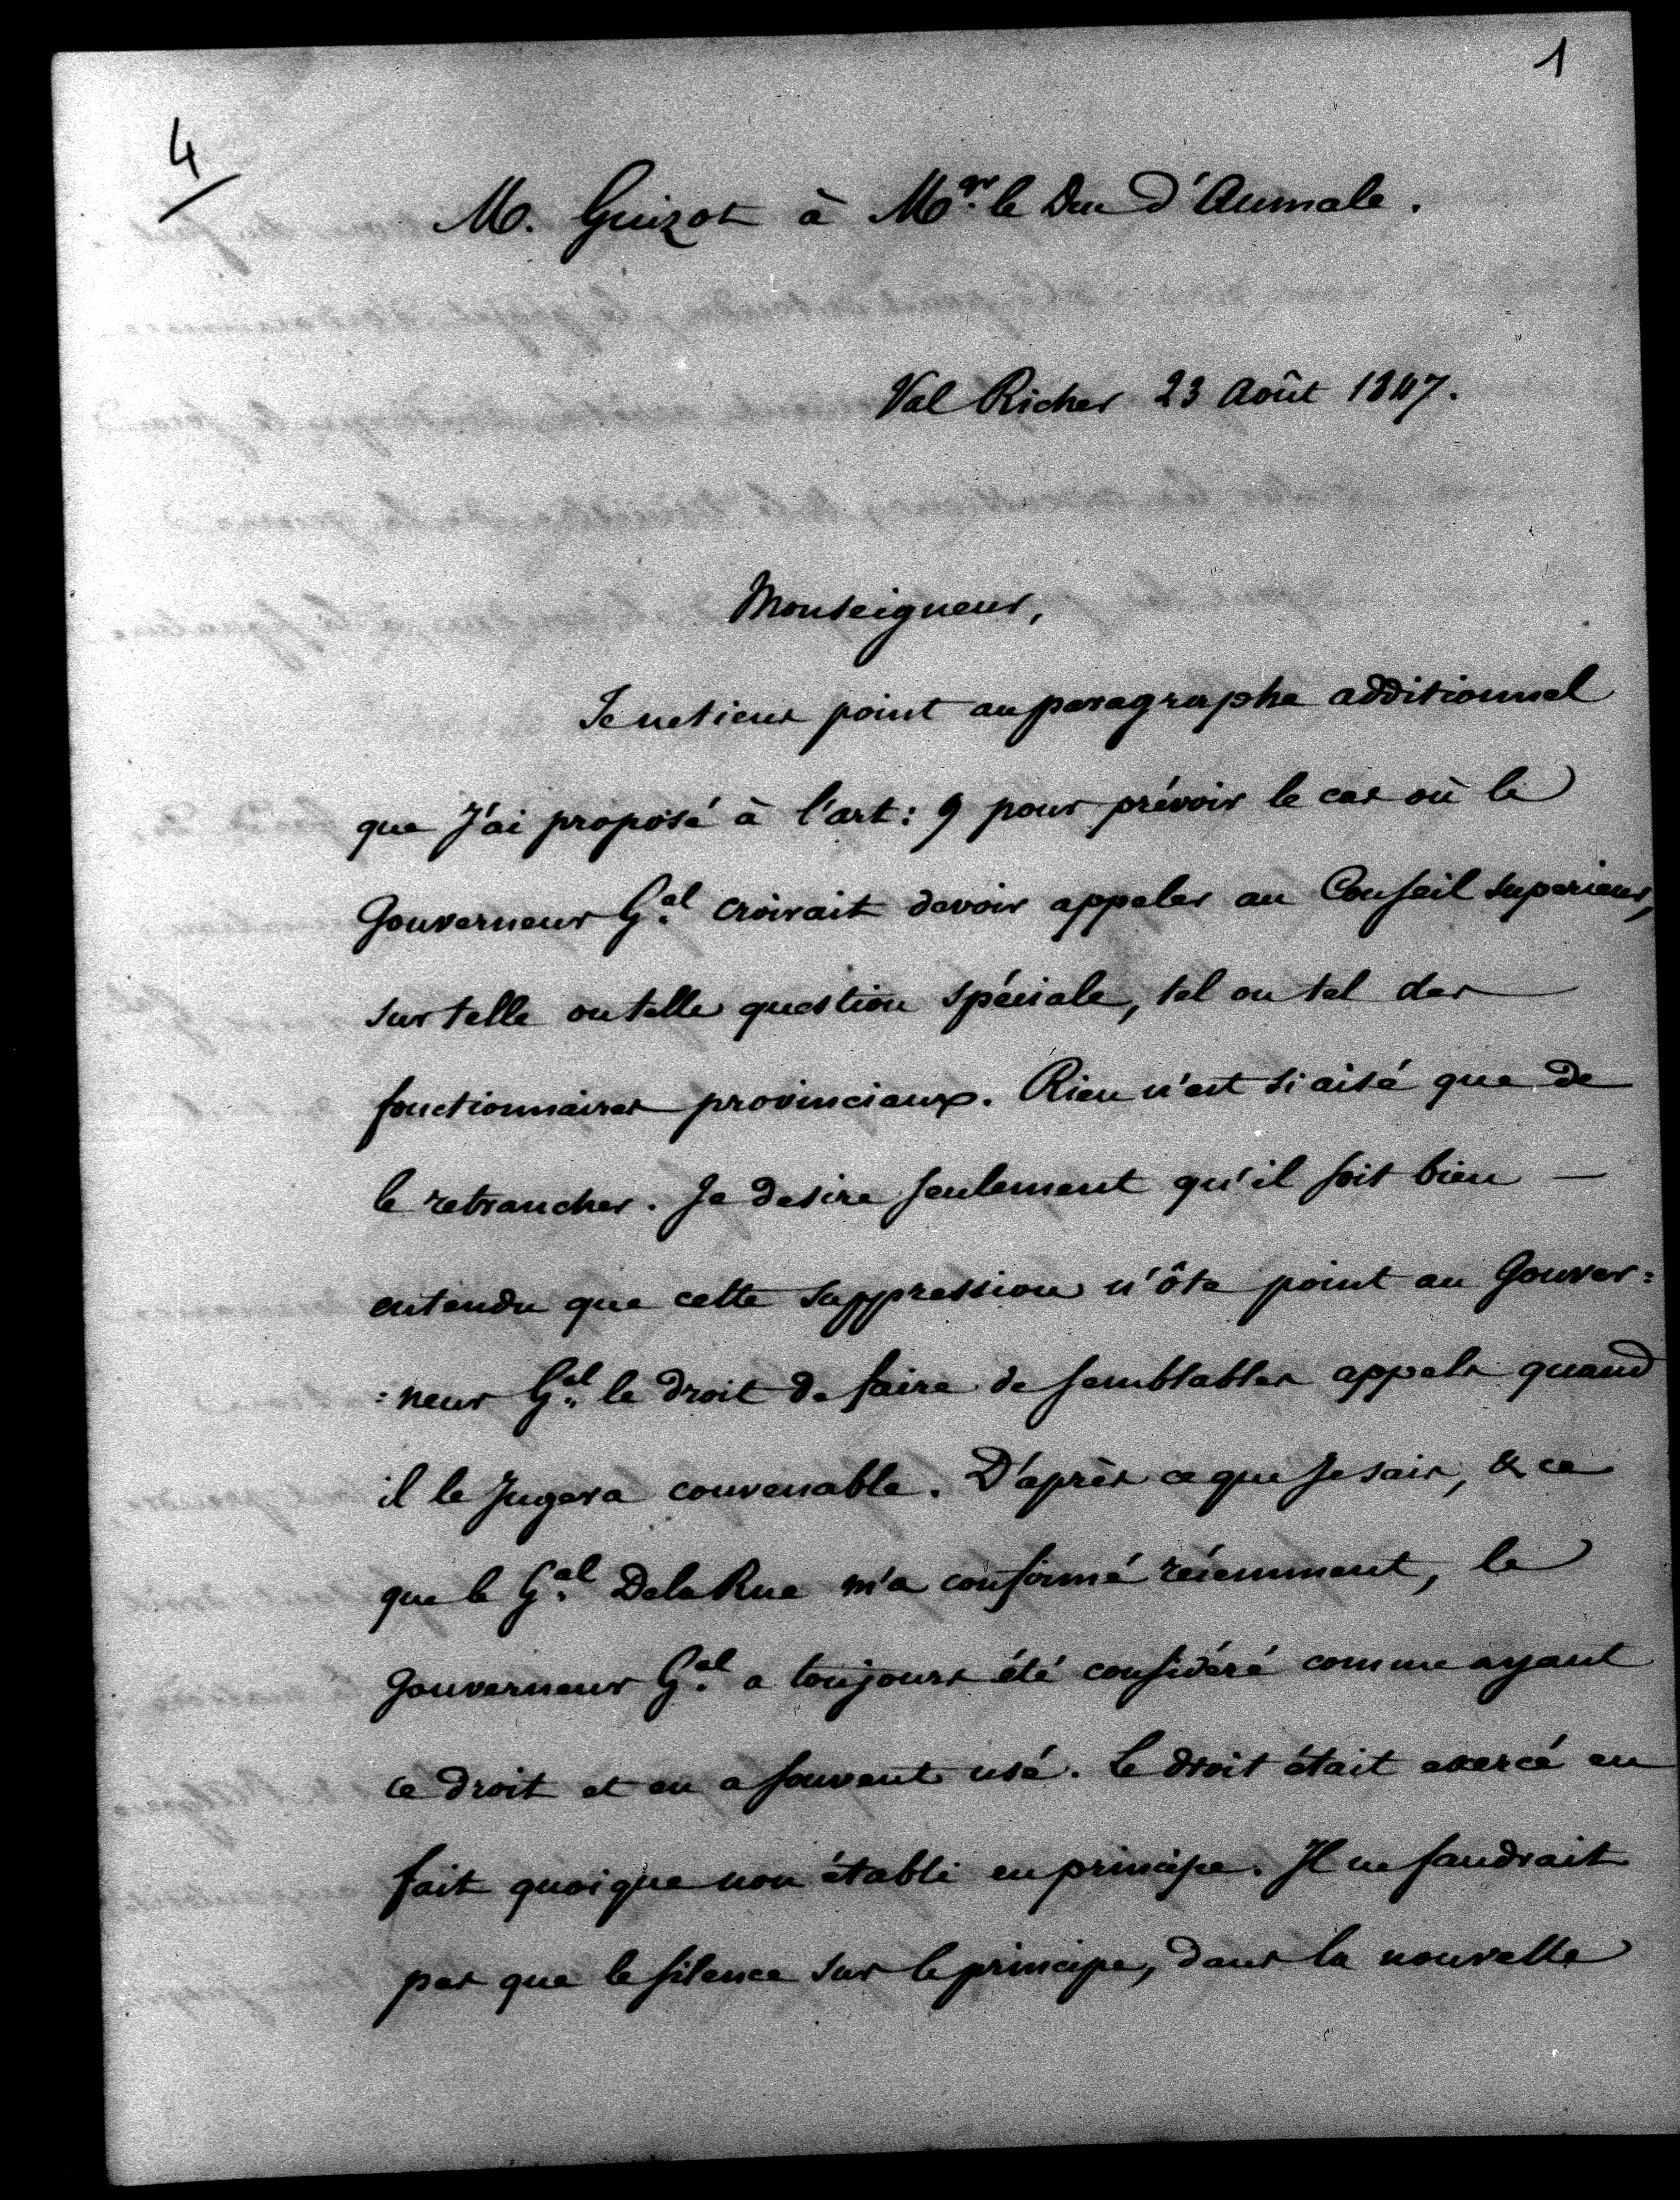 1
4
M. Guizot à Mgr. le Duc d'Aumale.
Val Richer 23 Août 1847.
Monseigneur,
Je ne tiens point au paragraphe additionnel
que J'ai proposé à l'art: 9 pour prévoir le cas où le
Gouverneur Gal croirait devoir appeler au Conseil superieur,
sur telle ou telle question spéciale, tel ou tel des
fonctionnaires provinciaux. Rien n'est si aisé que de
le retrancher. Je desire seulement qu'il soit bien —
entendu que cette suppression n'ôte point au Gouver=
=neur Gal le droit de faire de semblables appels quand
il le Jugera convenable. D'après ce que Je sais, & ce
que le Gal DelaRue m'a confirmé récemment, le
Gouverneur Gal a toujours été considéré comme ayant
ce droit et en a souvent usé. Le droit était exercé en
fait quoique non établi en principe. Il ne faudrait
pas que le silence sur le principe, dans la nouvelle